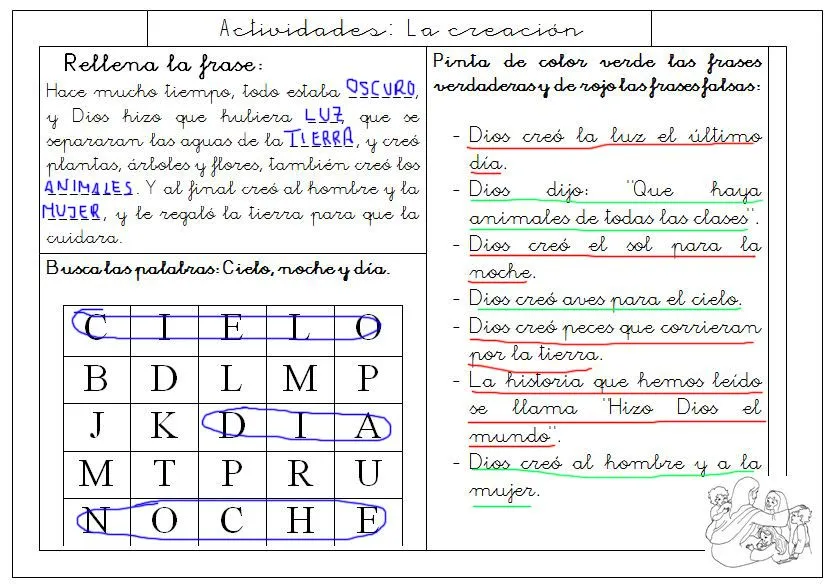 Actividades: La creación
Rellena la frase:
Hace mucho tiempo, todo estaba OSCURO,
y Dios hizo que hubiera LUZ que se
separaran las aguas de la TIERRA, y creó
plantas, árboles y flores, también creó los
ANIMALES. Y al final creó al hombre y la
MUJER, y le regaló la tierra para que la
cuidara.
Busca las palabras: Cielo, noche y día.
C I E L O
B D L M P
J K D I A
M T P R U
N O C H E
Pinta de color verde las frases
verdaderas y de rojo las frases falsas:
- Dios creó la luz el último
día.
- Dios dijo: "Que haya
animales de todas las clases".
- Dios creó el sol para la
noche.
- Dios creó aves para el cielo.
- Dios creó peces que corrieran
por la tierra.
- La historia que hemos leído
se llama "Hizo Dios el
mundo".
- Dios creó al hombre y a la
mujer.